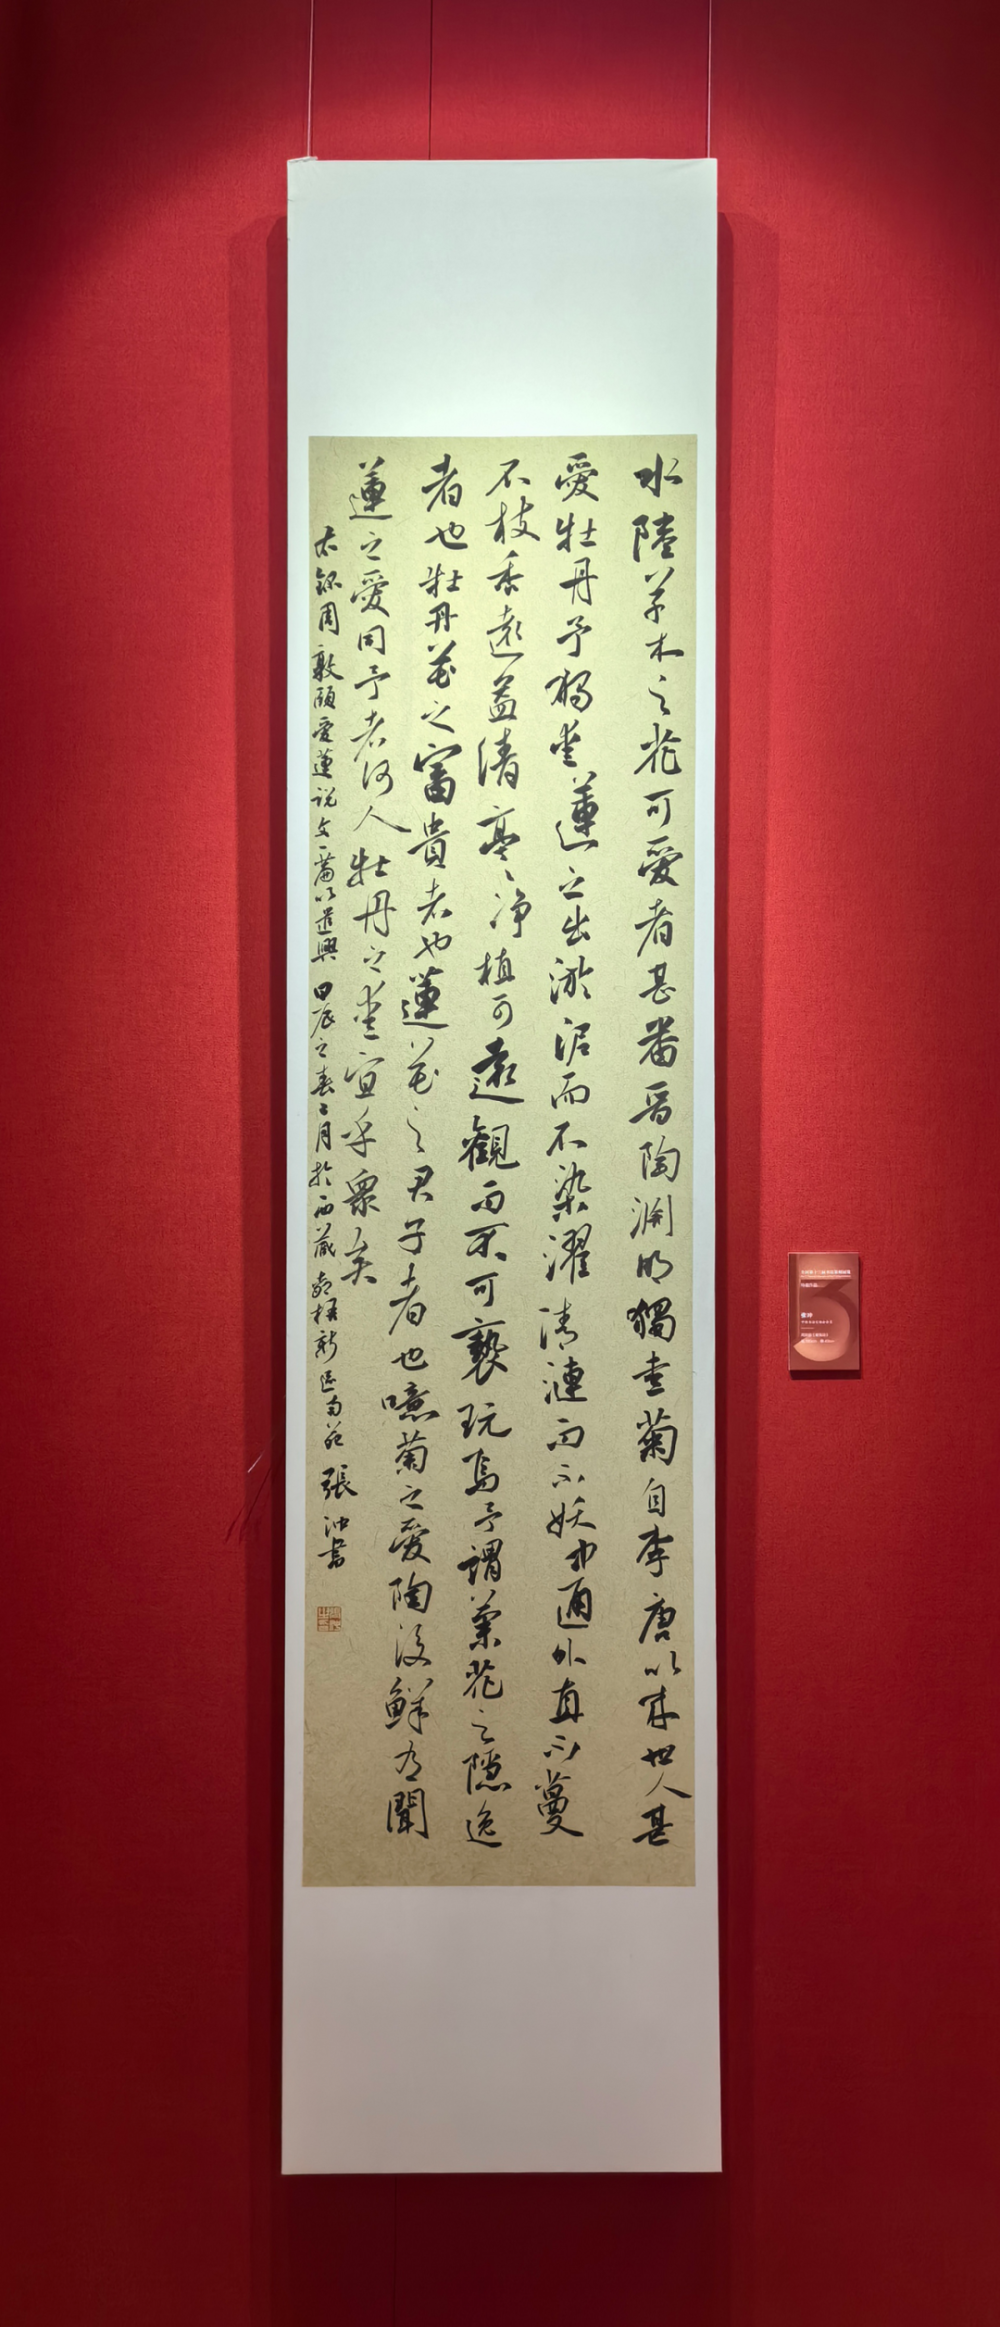 水陸草木之花可愛者甚蕃晉陶淵明獨愛菊自李唐以來世人甚
愛牡丹予獨愛蓮之出淤泥而不染濯清漣而不妖中通外直不蔓
不枝香遠益清亭亭淨植可遠觀而不可褻玩焉予謂菊花之隱逸
者也牡丹花之富貴者也蓮花之君子者也噫菊之愛陶後鮮有聞
蓮之愛同予者何人牡丹之愛宜乎衆矣
右錄周敦頤愛蓮說文一篇以遣興 甲辰之春二月於西藏 新區南苑 張沖書